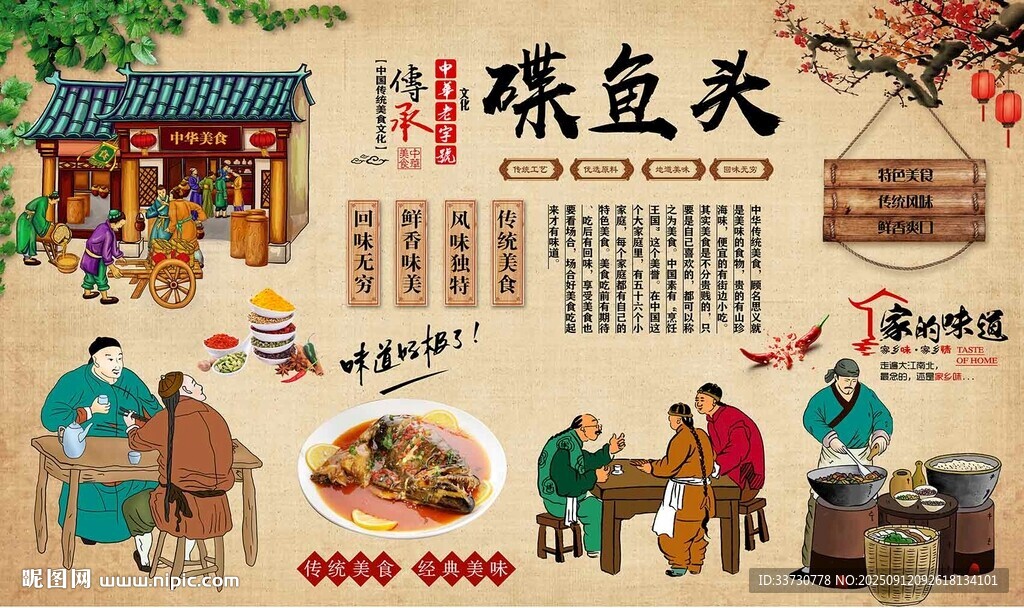 碟鱼头
中华老字號
文化
傳承
【中国传统美食文化】
中华美食
中华美食
传统工艺
优选原料
地道美味
回味无穷
特色美食
传统风味
鲜香爽口
传统美食
风味独特
鲜香味美
回味无穷
中华传统美食，顾名思义就
是美味的食物，贵的有山珍
海味，便宜的有街边小吃。
其实美食是不分贵贱的，只
要是自己喜欢的，都可以称
之为美食。中国素有“烹饪
王国”这个美誉。在中国这
个大家庭里，有五十六个小
家庭，每个家庭都有自己的
特色美食。美食吃前有期待
、吃后有回味，享受美食也
要看场合，场合好美食吃起
来才有味道。
味道好极了！
家的味道
家乡味·家乡情
TASTE
OF HOME
走遍大江南北，
最念的，还是家乡味...
传统美食 经典美味
昵图网 www.nipic.com
ID:33730778 NO:20250912092618134101